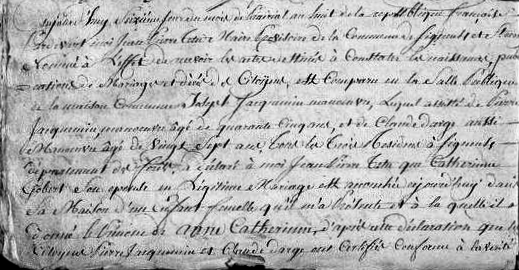 aujourd'huy sixième jour du mois de an huit de la republique française
pardevant moi Jean Pierre Maire provisoire de la Commune de et
Nommé à L'effet de recevoir les actes destinés à Constater les naissances, publi
cations de Mariages et décés de Citoyens, est Comparu en la Salle publique
de la maison Commune Joseph Jacquemin manoeuvre, Lequel assisté de Pierre
Jacquemin manoeuvre âgé de quarante Cinq ans, et de Claudedarge aussi
Manoeuvre âgé de vingt Sept ans tous les trois Residens à
département de a déclaré à moi Jean Pierre que Catherinne
Gobert son epouse en Légitime Mariage est accouchée aujourd'huy dans
Sa Maison d'un Enfant femelle qu'il m'a présenté et à la quelle il a
donné le prénom de anne Catherinne, d'après cette déclaration que les
Citoyens Pierre Jacquemin et Claudedarge ont Certifiée Conforme à la vérité